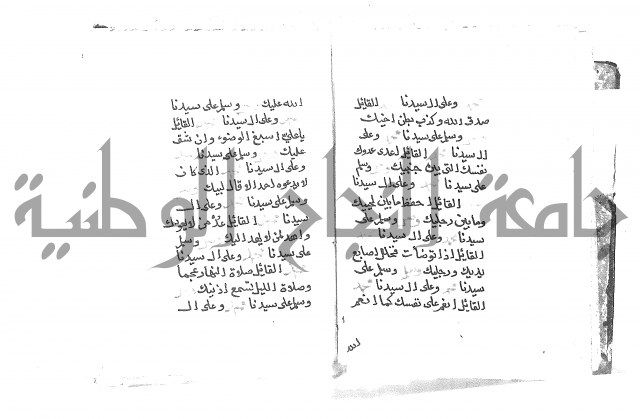 وعلى ال سيدنا القائل
صدق الله وكذب بطن اخيك
وسلم على سيدنا وعلى
ال سيدنا القائل اعدى عدوك
نفسك التى بين جنبيك وسلم
على سيدنا وعلى ال سيدنا
القائل احفظ ما بين لحييك
وما بين رجليك وسلم على
سيدنا وعلى ال سيدنا
القائل اذا توضأت فخلل اصابع
يديك ورجليك وسلم على
سيدنا وعلى ال سيدنا
القائل انعم على نفسك كما انعم
الله
الله عليك وسلم على سيدنا
وعلى ال سيدنا القائل
يا على اسبغ الوضوء وان شق
عليك وسلم على سيدنا
وعلى ال سيدنا الذى كان
لا يدعوه احد الا قال لبيك
وسلم على سيدنا وعلى ال
سيدنا القائل عد من لا يعودك
واهد لمن لا يهد اليك وسلم
على سيدنا وعلى ال سيدنا
القائل صلاة النهار عجما
وصلاة الليل تسمع اذنيك
وسلم على سيدنا وعلى ال
جامعة النجاح الوطنية